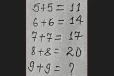 5+5=11
6+6=14
7+7=17
8+8=20
9+9=?